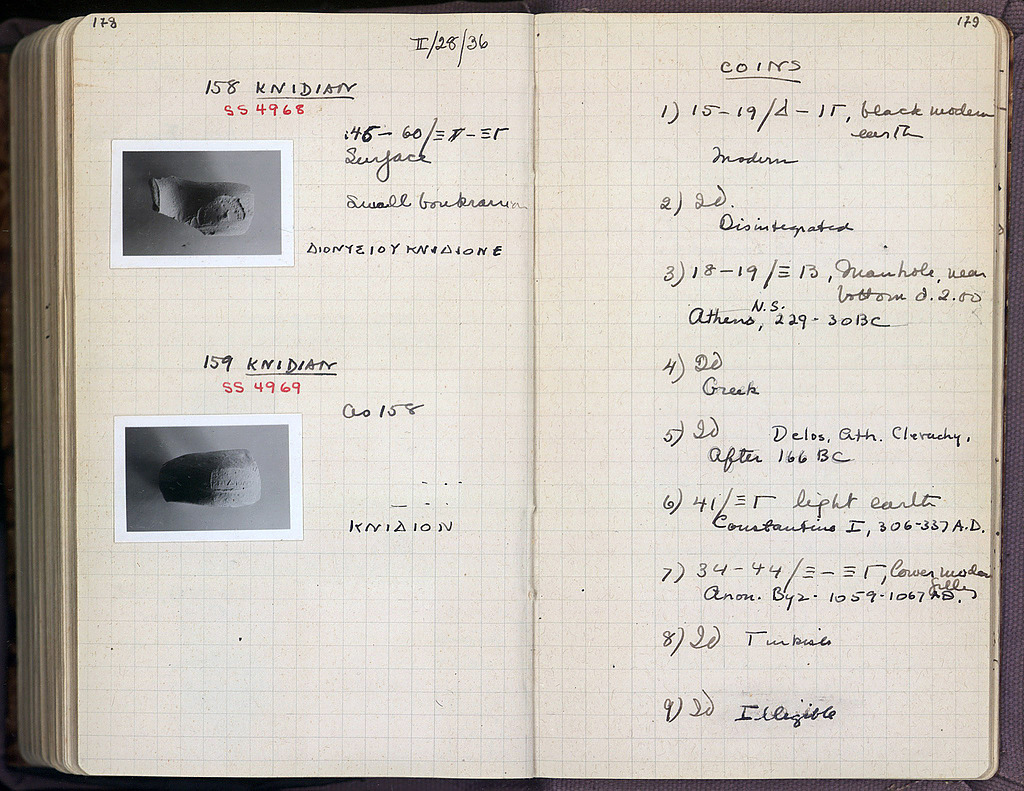 178
II/28/36
158 KNIDIAN
SS 4968
45 - 60/Ξ
Surface
Small boukranion
ΔΙΟΝΥΣΙΟΥ ΚΝΙΔΙΟΝΕ
159 KNIDIAN
SS 4969
as 158
ΚΝΙΔΙΟΝ
179
COINS
1) 15 - 19/Δ - ΙΓ, black modern
earth
Modern
2) Id.
Disintegrated
3) 18 - 19/Ξ Β, Manhole, near
bottom d. 2.00
N.S.
Athens, 229 - 30 BC
4) Id
Greek
5) Id Delos, Ath. Cleruchy,
After 166 BC
6) 41/ΞΓ light earth
Constantine I, 306-337 A.D.
7) 34 - 44/Ξ - ΞΓ, Lower modern
filling
Anon. Byz. 1059-1067 AD.
8) Id Turkish
9) Id Illegible